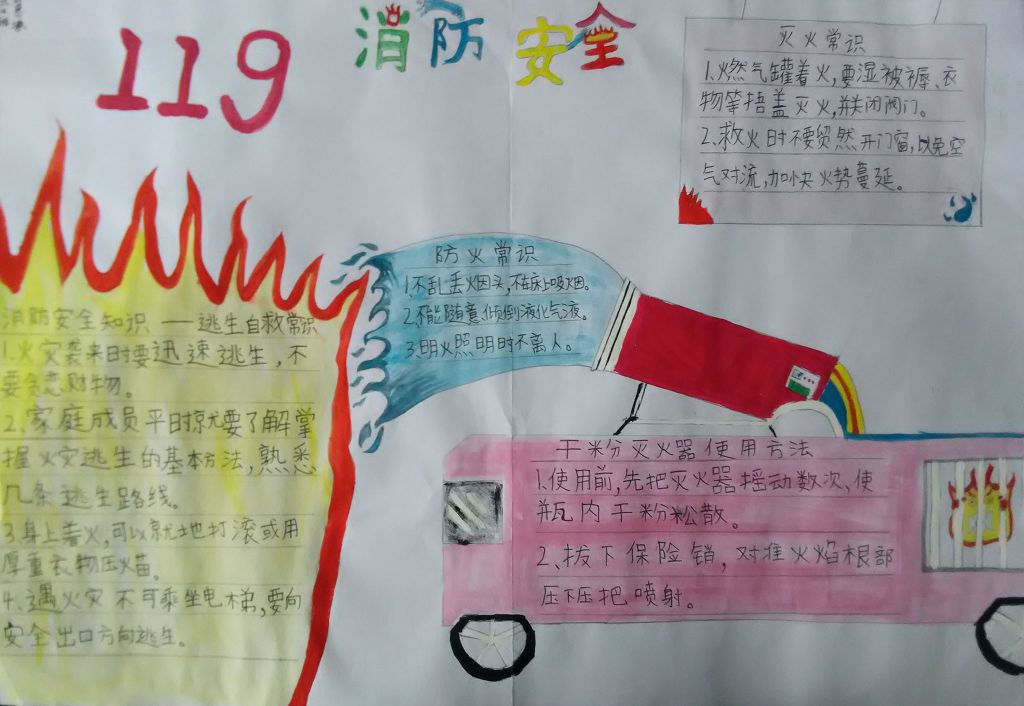 119
消防安全
灭火常识
1.燃气罐着火,要湿被褥、衣
物等捂盖灭火,并关闭阀门。
2.救火时不要贸然开门窗,以免空
气对流,加快火势蔓延。
防火常识
1.不乱丢烟头,不在床上吸烟。
2.不能随意倾倒液化气液。
3.明火照明时不离人。
消防安全知识——逃生自救常识
1.火灾袭来时要迅速逃生,不
要贪恋财物。
2.家庭成员平时就要了解掌
握火灾逃生的基本方法,熟悉
几条逃生路线。
3.身上着火,可以就地打滚或用
厚重衣物压火苗。
4.遇火灾不可乘坐电梯,要向
安全出口方向逃生。
干粉灭火器使用方法
1.使用前,先把灭火器摇动数次、使
瓶内干粉松散。
2.拔下保险销,对准火焰根部
压下压把喷射。